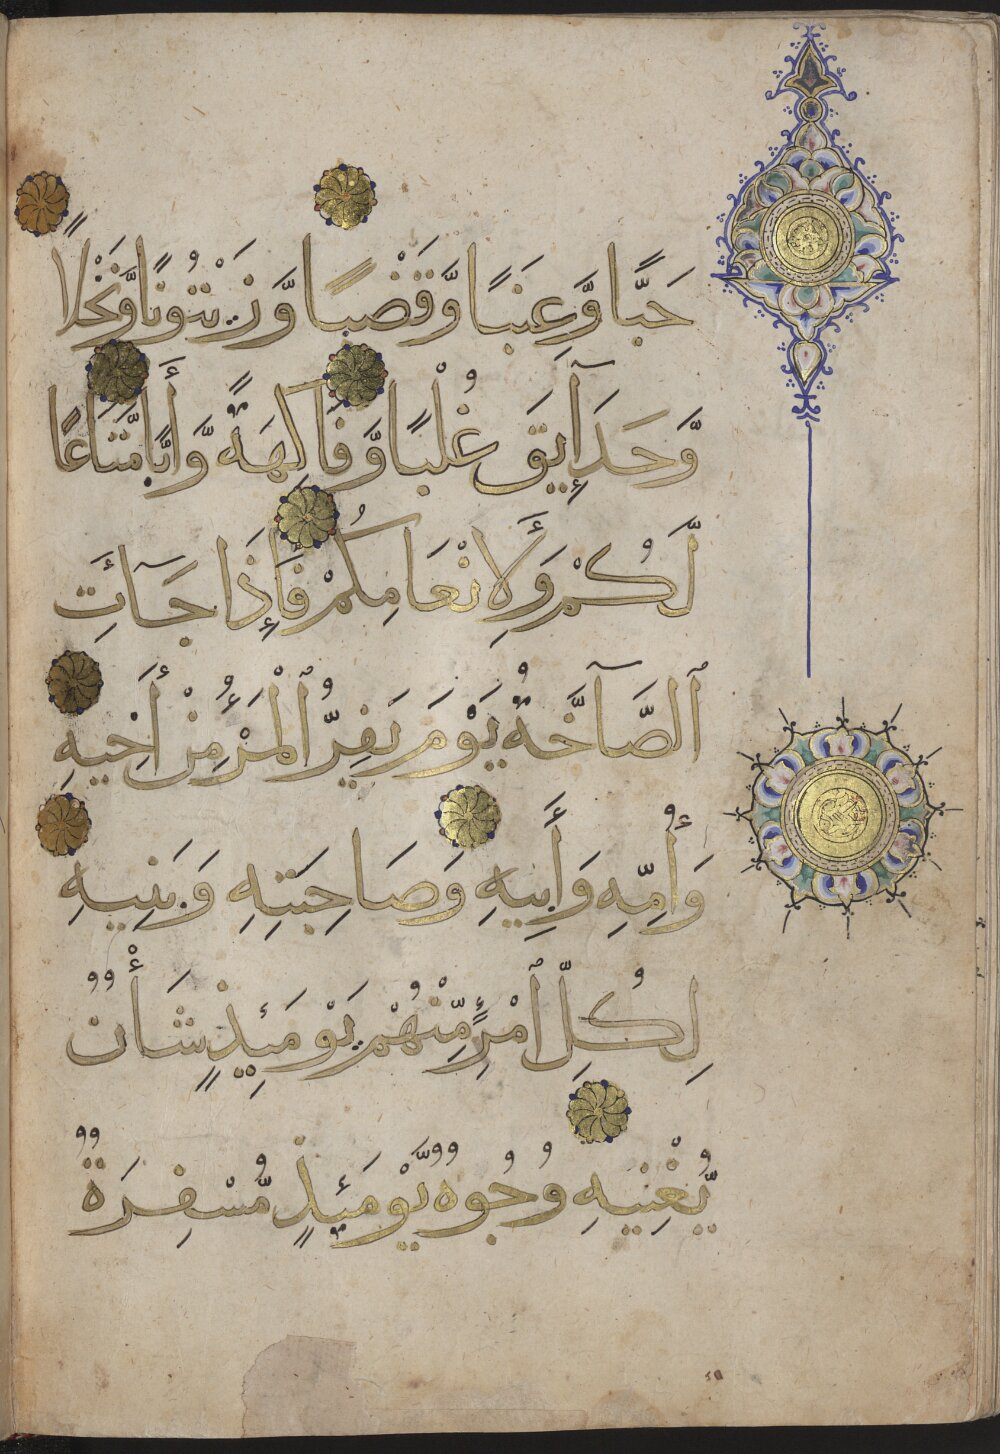 حَبًّا وَّعِنَبًا وَّقَضْبًا وَّزَيْتُونًا وَّنَخْلًا
وَّحَدَآئِقَ غُلْبًا وَّفَاكِهَةً وَّأَبًّا مَّتَاعًا
لَّكُمْ وَلِأَنْعَامِكُمْ فَإِذَا جَآءَتِ
ٱلصَّآخَّةُ يَوْمَ يَفِرُّ ٱلْمَرْءُ مِنْ أَخِيهِ
وَأُمِّهِ وَأَبِيهِ وَصَاحِبَتِهِ وَبَنِيهِ
لِكُلِّ ٱمْرِئٍ مِّنْهُمْ يَوْمَئِذٍ شَأْنٌ
يُّغْنِيهِ وُجُوهٌ يَّوْمَئِذٍ مُّسْفِرَةٌ